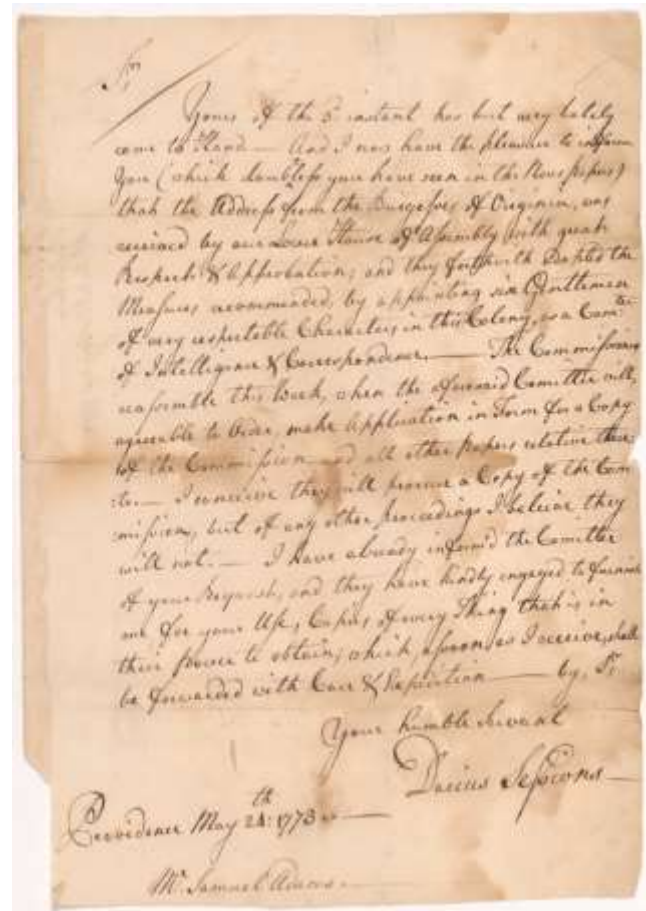 Sr.
Yours of the 5 instant has but very lately
come to Hand — And I now have the pleasure to inform
you (which doubtless you have seen in the News papers)
that the Address from the Burgesses of Virginia, was
received by our Lower House of Assembly with great
Respect & Approbation; and they forthwith Dopted the
Measures recommended, by appointing six Gentlemen
of very respectable Characters in this Colony, as a Comtee
of Intelligence & Correspondence. — The Commissioners
reassemble this Week, when the aforesaid Comittee will,
agreeable to Order, make Application in Form for a Copy
of the Commission and all other Papers relative there-
-to. — I conceive they will procure a Copy of the Com
mission, but of any other proceedings I beleive they
will not. — I have already inform'd the Comittee
of your Request, and they have kindly engaged to furnish
me for your Use, Copies of every Thing that is in
their power to obtain; which, assoon as I receive, shall
be forwarded with Care & Expedition — by, Sr.
Your humble Servant
Darius Sessions —
Providence May 24th: 1773 —
Mr. Samuel Adams. —